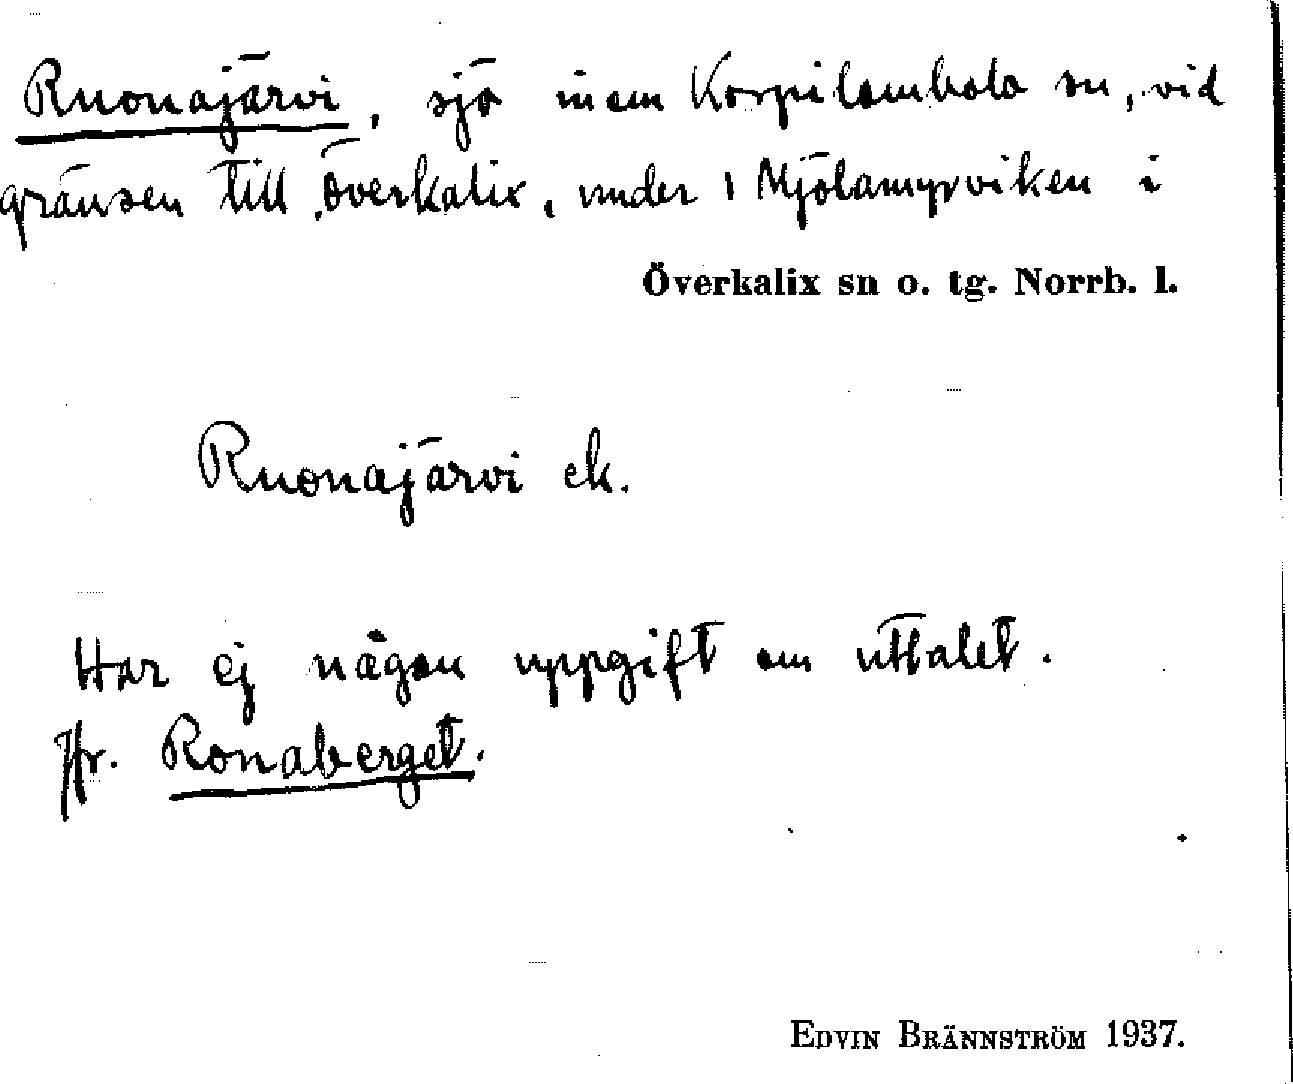 Ruonajärvi, sjö inom Korpilombolo sn, vid
gränsen till Överkalix, under 1 Mjölamyrviken i
Överkalix sn o. tg. Norrb. l.
Ruonajärvi ek.
Har ej någon uppgift om uttalet.
Jfr. Ronaberget.
EDVIN BRÄNNSTRÖM 1937.